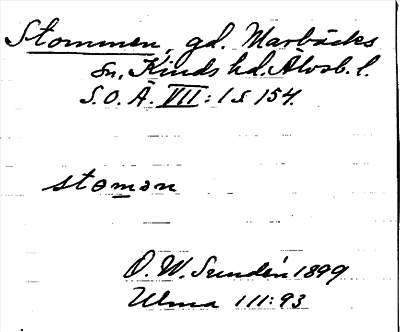 Stommen, gd. Marbäcks
sn, Kinds hd. Älvsb. l.
S.O.Ä. VII:1 s 154.
stoman
O. W. Sundén 1899
Ulma 111:93